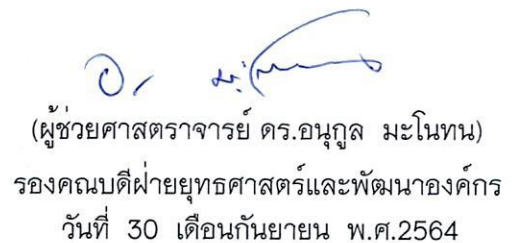 (ผู้ช่วยศาสตราจารย์ ดร.อนุกูล มะโนทน)
รองคณบดีฝ่ายยุทธศาสตร์และพัฒนาองค์กร
วันที่ 30 เดือนกันยายน พ.ศ.2564